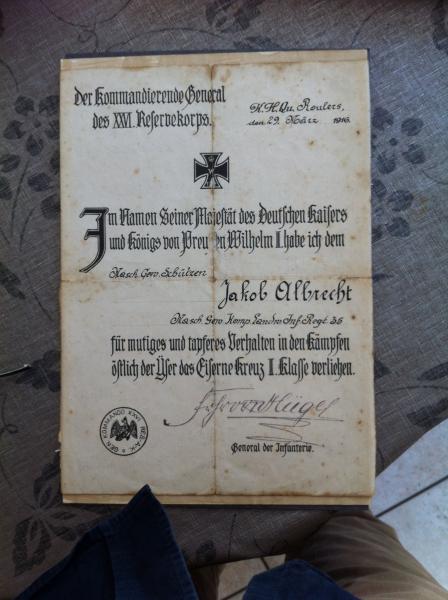 Der Kommandierende General
des XXVI. Reservekorps.
K. H. Qu. Roulers,
den 29. März 1916.
Im Namen Seiner Majestät des Deutschen Kaisers
und Königs von Preußen Wilhelm II. habe ich dem
Masch. Gew. Schützen
Jakob Albrecht
Masch. Gew. Komp. Landw. Inf. Regt. 36
für mutiges und tapferes Verhalten in den Kämpfen
östlich der Yser das Eiserne Kreuz II. Klasse verliehen.
Frhr von Hügel
General der Infanterie.
GEN. KOMMANDO XXVI. RES. A. K.